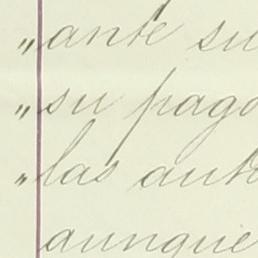 „ante su
„su pago
„las aut
aunque